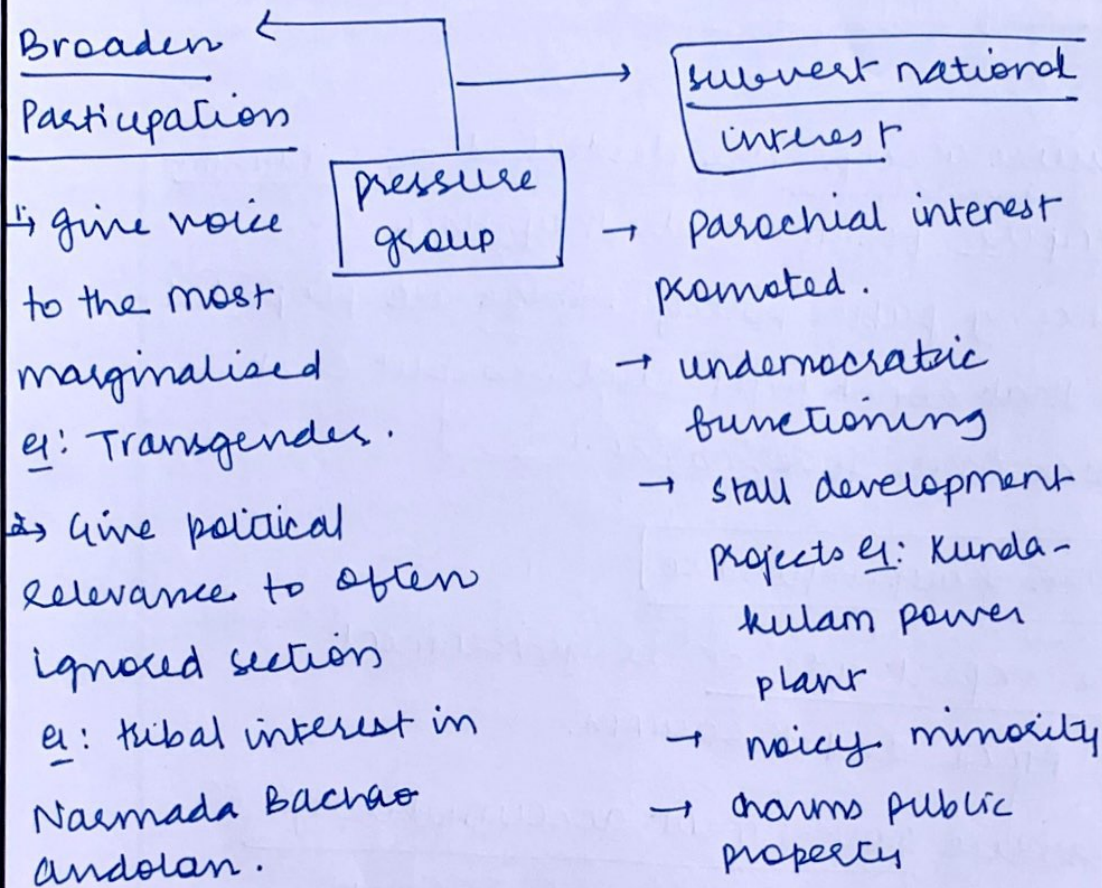 Broaden
Participation
1→ give voice
to the most
marginalised
eg: Transgender.
2→ Give political
relevance to often
ignored section
eg: tribal interest in
Narmada Bachao
Andolan.
pressure
group
subvert national
interest
→ Parochial interest
promoted.
→ undemocratic
functioning
→ stall development
projects eg: Kunda-
kulam power
plant
→ noicy minority
→ charms public
property